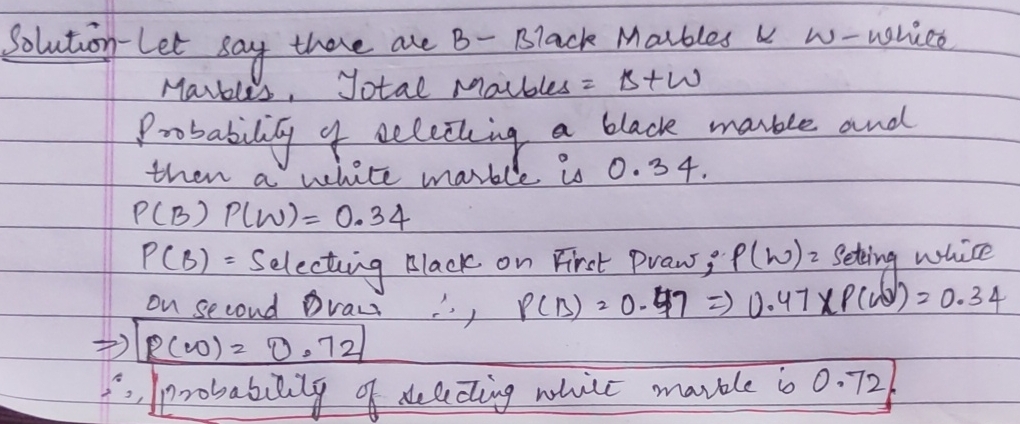 Solution - Let say there are B - Black Marbles & W - white
Marbles, Total Marbles = B+W
Probability of selecting a black marble and
then a white marble is 0.34.
P(B) P(W) = 0.34
P(B) = Selecting Black on First Draw; P(W) = Seting white
on second Draw ∴, P(B) = 0.47 => 0.47 X P(W) = 0.34
=> P(W) = 0.72
∴, probability of selecting white marble is 0.72.